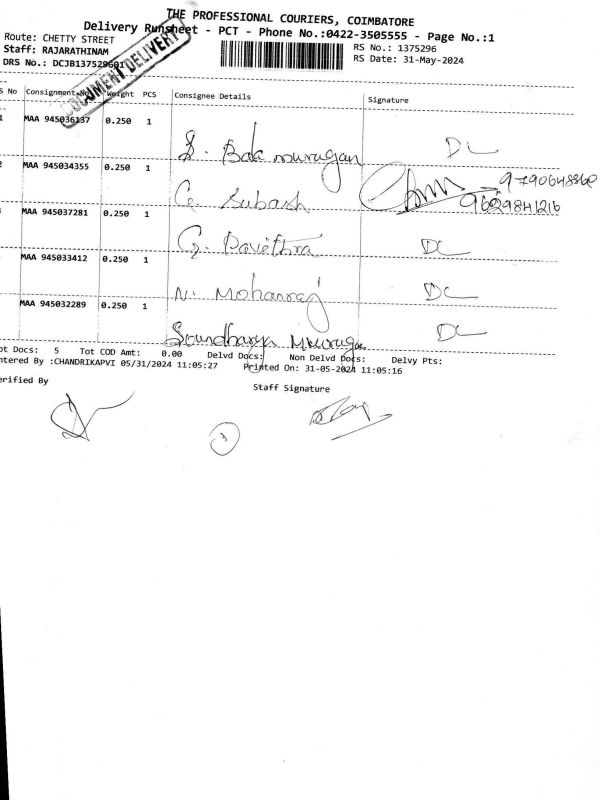 THE PROFESSIONAL COURIERS, COIMBATORE
Delivery Runsheet - PCT - Phone No.:0422-3505555 - Page No.:1
Route: CHETTY STREET
RS No.: 1375296
Staff: RAJARATHINAM
RS Date: 31-May-2024
DRS No.: DCJB137529601
DOCUMENT DELIVERY
S No Consignment No Weight PCS Consignee Details Signature
1 MAA 945036137 0.250 1
S. Bala murugan DL
2 MAA 945034355 0.250 1
G. Subash
9629841216
MAA 945037281 0.250 1
G. Pavithra DL
MAA 945033412 0.250 1
N. Mohanraj DL
MAA 945032289 0.250 1
Soundharya DL
ot Docs: 5 Tot COD Amt: 0.00 Delvd Docs: Non Delvd Docs: Delvy Pts:
ntered By :CHANDRIKAPVI 05/31/2024 11:05:27 Printed On: 31-05-2024 11:05:16
erified By
Staff Signature
1